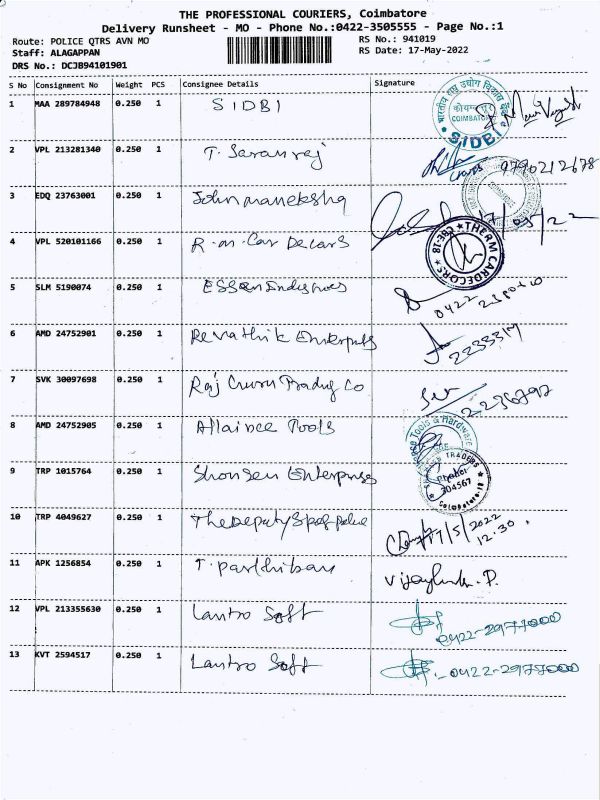 THE PROFESSIONAL COURIERS, Coimbatore
Delivery Runsheet - MO - Phone No.:0422-3505555 - Page No.:1
Route: POLICE QTRS AVN MO RS No.: 941019
Staff: ALAGAPPAN RS Date: 17-May-2022
DRS No.: DCJB94101901
S No Consignment No Weight PCS Consignee Details Signature
1 MAA 289784948 0.250 1 SIDBI
COIMBATORE
SIDBI
2 VPL 213281340 0.250 1 T. Saranraj 9790212678
3 EDQ 23763001 0.250 1 John maneksha 17/05/22
4 VPL 520101166 0.250 1 R.m. Car Decors
THERM CARDECORS CBE-18
5 SLM 5190074 0.250 1 Essen Industries 0422
6 AMD 24752901 0.250 1 Revathi Enterprises 2233317
7 SVK 30097698 0.250 1 Raj Trading Co 2236797
8 AMD 24752905 0.250 1 Allaince Tools
Tools & Hardware
9 TRP 1015764 0.250 1 Enterprises
TRADERS
Coimbatore-18
10 TRP 4049627 0.250 1 The Deputy S of police 17/5/2022
12.30
11 APK 1256854 0.250 1 T. parthiban P.
12 VPL 213355630 0.250 1 Lantro Soft
0422-2977000
13 KVT 2594517 0.250 1 Lantro Soft 0422-2977000